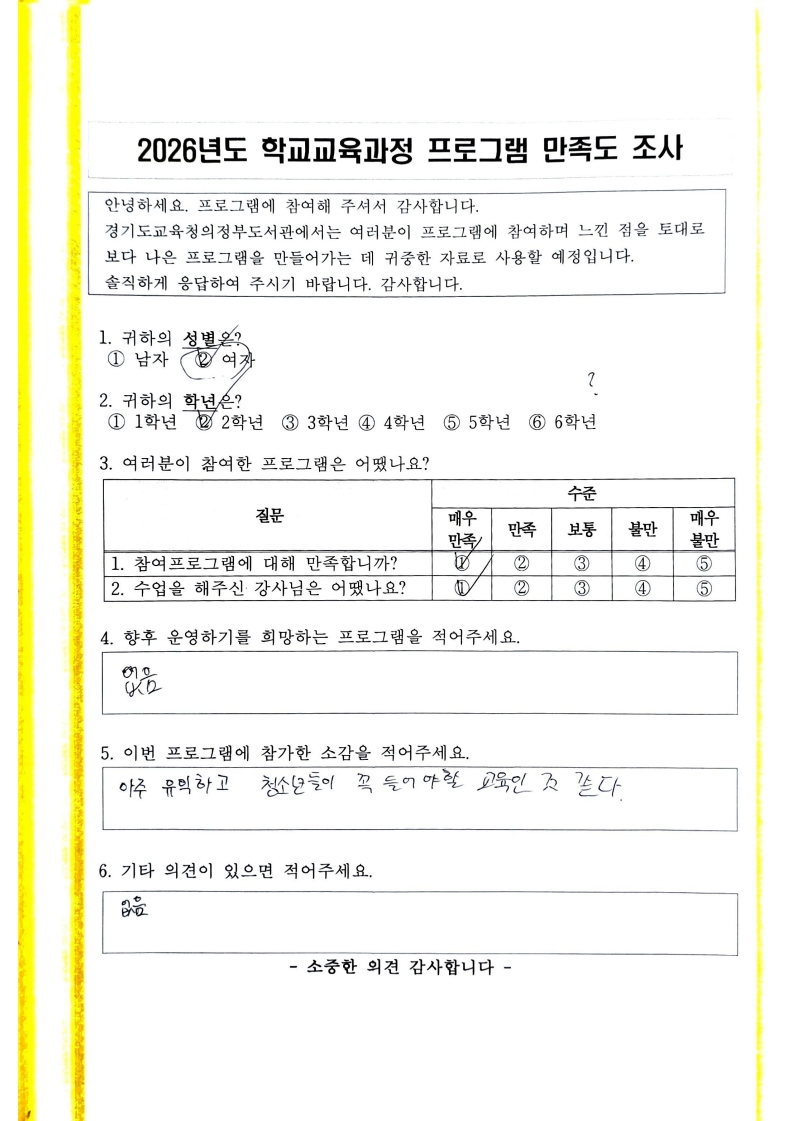 2026년도 학교교육과정 프로그램 만족도 조사
안녕하세요. 프로그램에 참여해 주셔서 감사합니다.
경기도교육청의정부도서관에서는 여러분이 프로그램에 참여하며 느낀 점을 토대로
보다 나은 프로그램을 만들어가는 데 귀중한 자료로 사용할 예정입니다.
솔직하게 응답하여 주시기 바랍니다. 감사합니다.
1. 귀하의 성별은?
① 남자 ② 여자
?
2. 귀하의 학년은?
① 1학년 ② 2학년 ③ 3학년 ④ 4학년 ⑤ 5학년 ⑥ 6학년
3. 여러분이 참여한 프로그램은 어땠나요?
질문 수준
매우 만족 만족 보통 불만 매우 불만
1. 참여프로그램에 대해 만족합니까? ① ② ③ ④ ⑤
2. 수업을 해주신 강사님은 어땠나요? ① ② ③ ④ ⑤
4. 향후 운영하기를 희망하는 프로그램을 적어주세요.
없음
5. 이번 프로그램에 참가한 소감을 적어주세요.
아주 유익하고 청소년들이 꼭 들어야할 교육인 것 같다.
6. 기타 의견이 있으면 적어주세요.
없음
- 소중한 의견 감사합니다 -